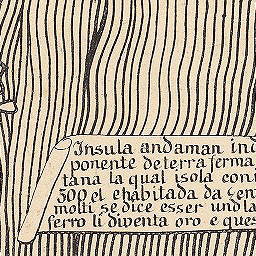 Insula andaman ind
ponente de terra ferma
tana la qual isola con
300 el e habitada da gen
molti se dice esser un la
ferro li diventa oro e ques